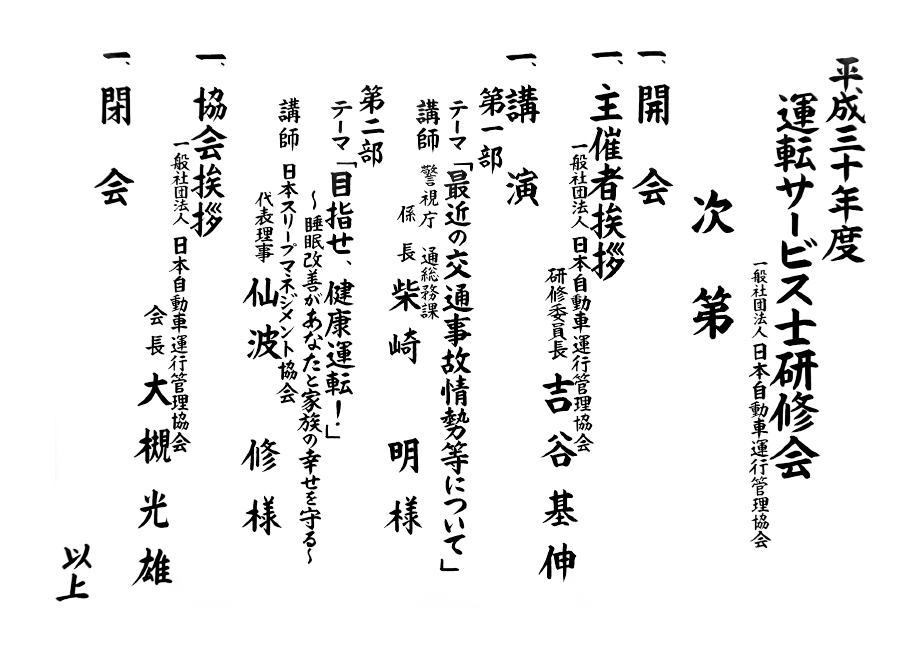 平成三十年度
運転サービス士研修会
一般社団法人 日本自動車運行管理協会
次第
一、開会
一、主催者挨拶
一般社団法人 日本自動車運行管理協会
研修委員長 吉谷基伸
一、講演
第一部
テーマ「最近の交通事故情勢等について」
講師 警視庁 交通総務課
係長 柴崎 明様
第二部
テーマ「目指せ、健康運転!」
~睡眠改善があなたと家族の幸せを守る~
講師 日本スリープマネジメント協会
代表理事 仙波 修様
一、協会挨拶
一般社団法人 日本自動車運行管理協会
会長 大槻光雄
一、閉会
以上